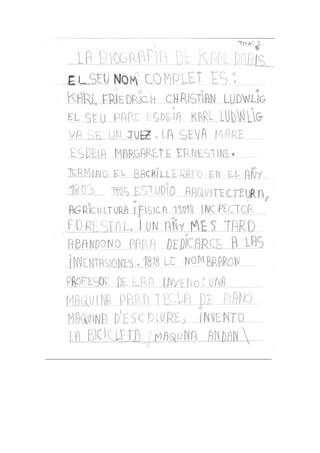 LA BIOGRAFIA DE KARL DRAIS
EL SEU NOM COMPLET ES:
KARL FRIEDRICH CHRISTIAN LUDWIIG
EL SEU PARE ESDEIA KARL LUDWIIG
VA SE UN JUEZ. LA SEVA MARE
ESDEIA MARGARETE ERNESTINE.
TERMINO EL BACHILLERATO EN EL AÑY
1803 1805 ESTUDIO ARQUITECTEURA,
AGRICULTURA I FISICA INCPECTOR
FORESTAL. I UN AÑY MES TARD
ABANDONO PARA DEDICARCE A LAS
INVENTASIONES. 1818 LE NOMBRARON
PROFESOR DE ERA INVENO: UNA
MAQUINA PARA TECLA DE PIANO
MAQUINA D'ESCRIURE, INVENTO
LA BICICLETA (MAQUNA ANDAN)